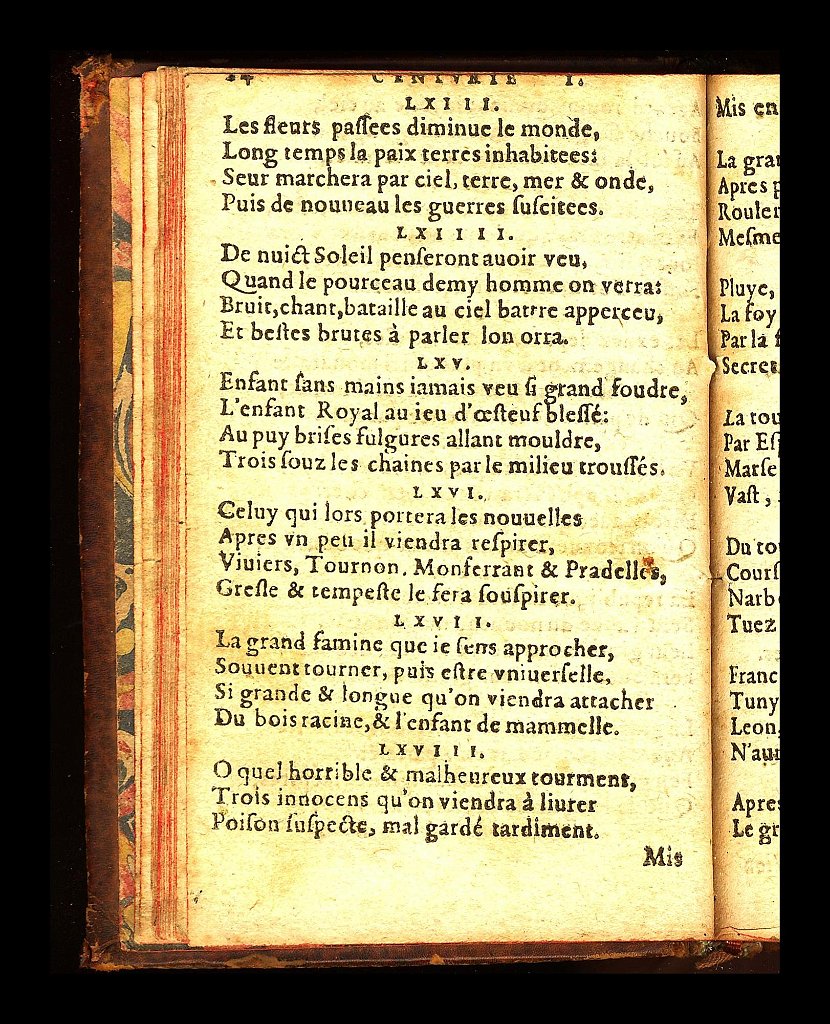 CENTVRIE I.
LXIII.
Les fleurs paſſees diminue le monde,
Long temps la paix terres inhabitees:
Seur marchera par ciel, terre, mer & onde,
Puis de nouueau les guerres ſuſcitees.
LXIIII.
De nuict Soleil penſeront auoir veu,
Quand le pourceau demy homme on verra:
Bruit, chant, bataille au ciel battre apperceu,
Et beſtes brutes à parler lon orra.
LXV.
Enfant ſans mains iamais veu ſi grand foudre,
L'enfant Royal au ieu d'œſteuf bleſſé:
Au puy briſes fulgures allant mouldre,
Trois ſouz les chaines par le milieu trouſſés.
LXVI.
Celuy qui lors portera les nouuelles
Apres vn peu il viendra reſpirer,
Viuiers, Tournon, Monferrant & Pradelles,
Greſle & tempeſte le fera ſouſpirer.
LXVII.
La grand famine que ie ſens approcher,
Souuent tourner, puis eſtre vniuerſelle,
Si grande & longue qu'on viendra attacher
Du bois racine, & l'enfant de mammelle.
LXVIII.
O quel horrible & malheureux tourment,
Trois innocens qu'on viendra à liurer
Poiſon ſuſpecte, mal gardé tardiment.
Mis
Mis en
La
Apres
Meſme
Pluye,
La foy
Par la
La
Par
Vaſt,
Tuez
Tuny
Leon,
Le